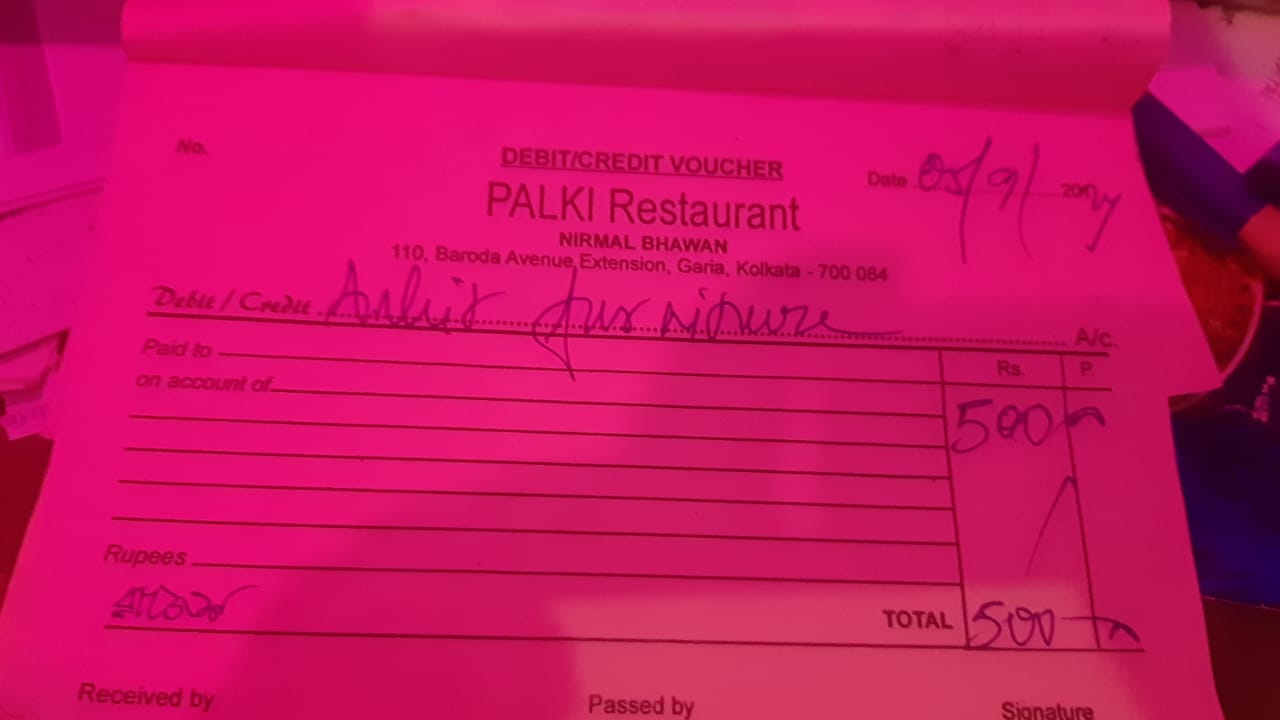 No.
DEBIT/CREDIT VOUCHER
Date 05/9/2024
PALKI Restaurant
NIRMAL BHAWAN
110, Baroda Avenue Extension, Garia, Kolkata - 700 084
Debit / Credit Ankit furniture A/c.
Paid to Rs. P.
on account of
500
Rupees
TOTAL 500
Received by Passed by Signature